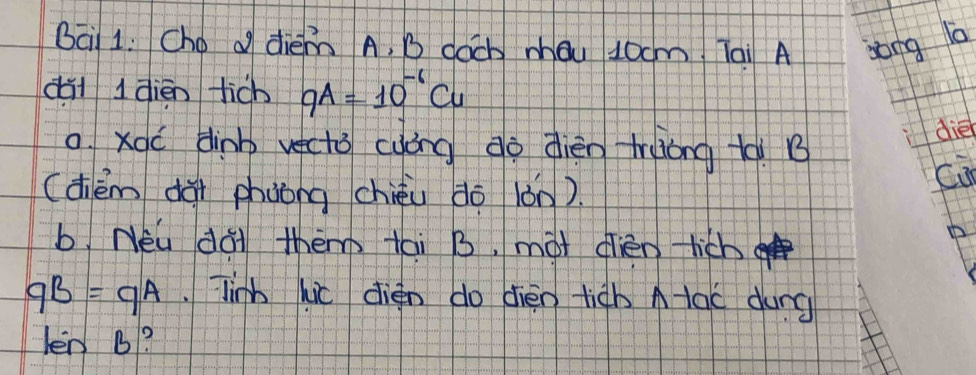 Bài 1: Cho 2 điểm A, B cách nhau 10cm. Tại A
đặt 1 điện tích qA = 10⁻⁶ Cu
a. Xác định vectơ cường độ điện trường tại B
(điểm đặt phương chiều độ lớn).
b. Nếu đặt thêm tại B, một điện tích
qB = qA. Tính lực điện do điện tích A tác dụng
lên B?
ong là
điện